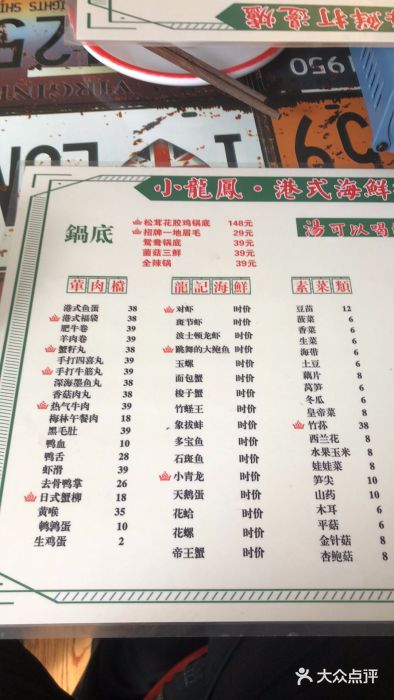 海鮮打邊爐
1950
VIRGINIA
小龍鳳·港式海鮮
鍋底
松茸花胶鸡锅底 148元
招牌一地眉毛 29元
鸳鸯锅底 39元
菌菇三鲜 39元
全辣锅 39元
湯可以喝
葷肉檔
港式鱼蛋 38
港式福袋 38
肥牛卷 39
羊肉卷 39
蟹籽丸 38
手打四喜丸 39
手打牛筋丸 39
深海墨鱼丸 38
香菇肉丸 38
热气牛肉 39
梅林午餐肉 18
黑毛肚 39
鸭血 10
鸭舌 28
虾滑 39
去骨鸭掌 26
日式蟹柳 18
黄喉 35
鹌鹑蛋 10
生鸡蛋 2
龍記海鮮
对虾 时价
斑节虾 时价
波士顿龙虾 时价
跳舞的大鲍鱼 时价
玉螺 时价
面包蟹 时价
梭子蟹 时价
竹蛏王 时价
象拔蚌 时价
多宝鱼 时价
石斑鱼 时价
小青龙 时价
天鹅蛋 时价
花蛤 时价
花螺 时价
帝王蟹 时价
素菜類
豆苗 12
菠菜 8
香菜 8
生菜 8
海带 6
土豆 6
藕片 8
莴笋 6
冬瓜 6
皇帝菜 8
竹荪 38
西兰花 8
水果玉米 8
娃娃菜 8
笋尖 10
山药 10
木耳 6
平菇 6
金针菇 8
杏鲍菇 8
大众点评